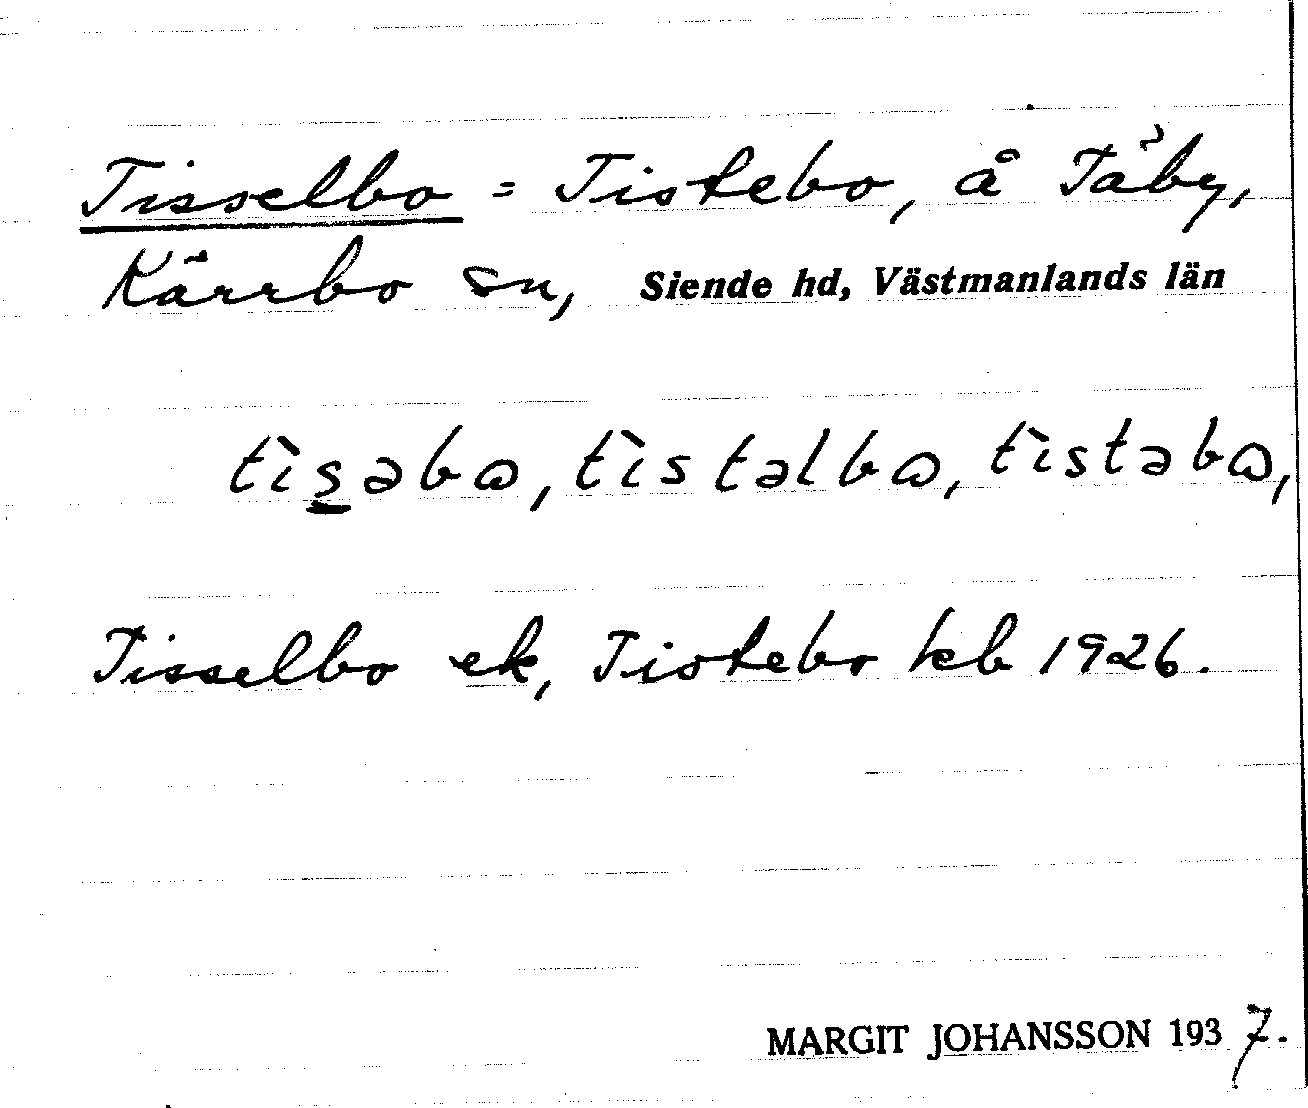 Tisselbo = Tistebo, å Täby,
Kärrbo sn, Siende hd, Västmanlands län
tìs̲əbɷ, tìstəlbɷ, tìstəbɷ,
Tisselbo ek, Tistebo kb 1926.
MARGIT JOHANSSON 1937.